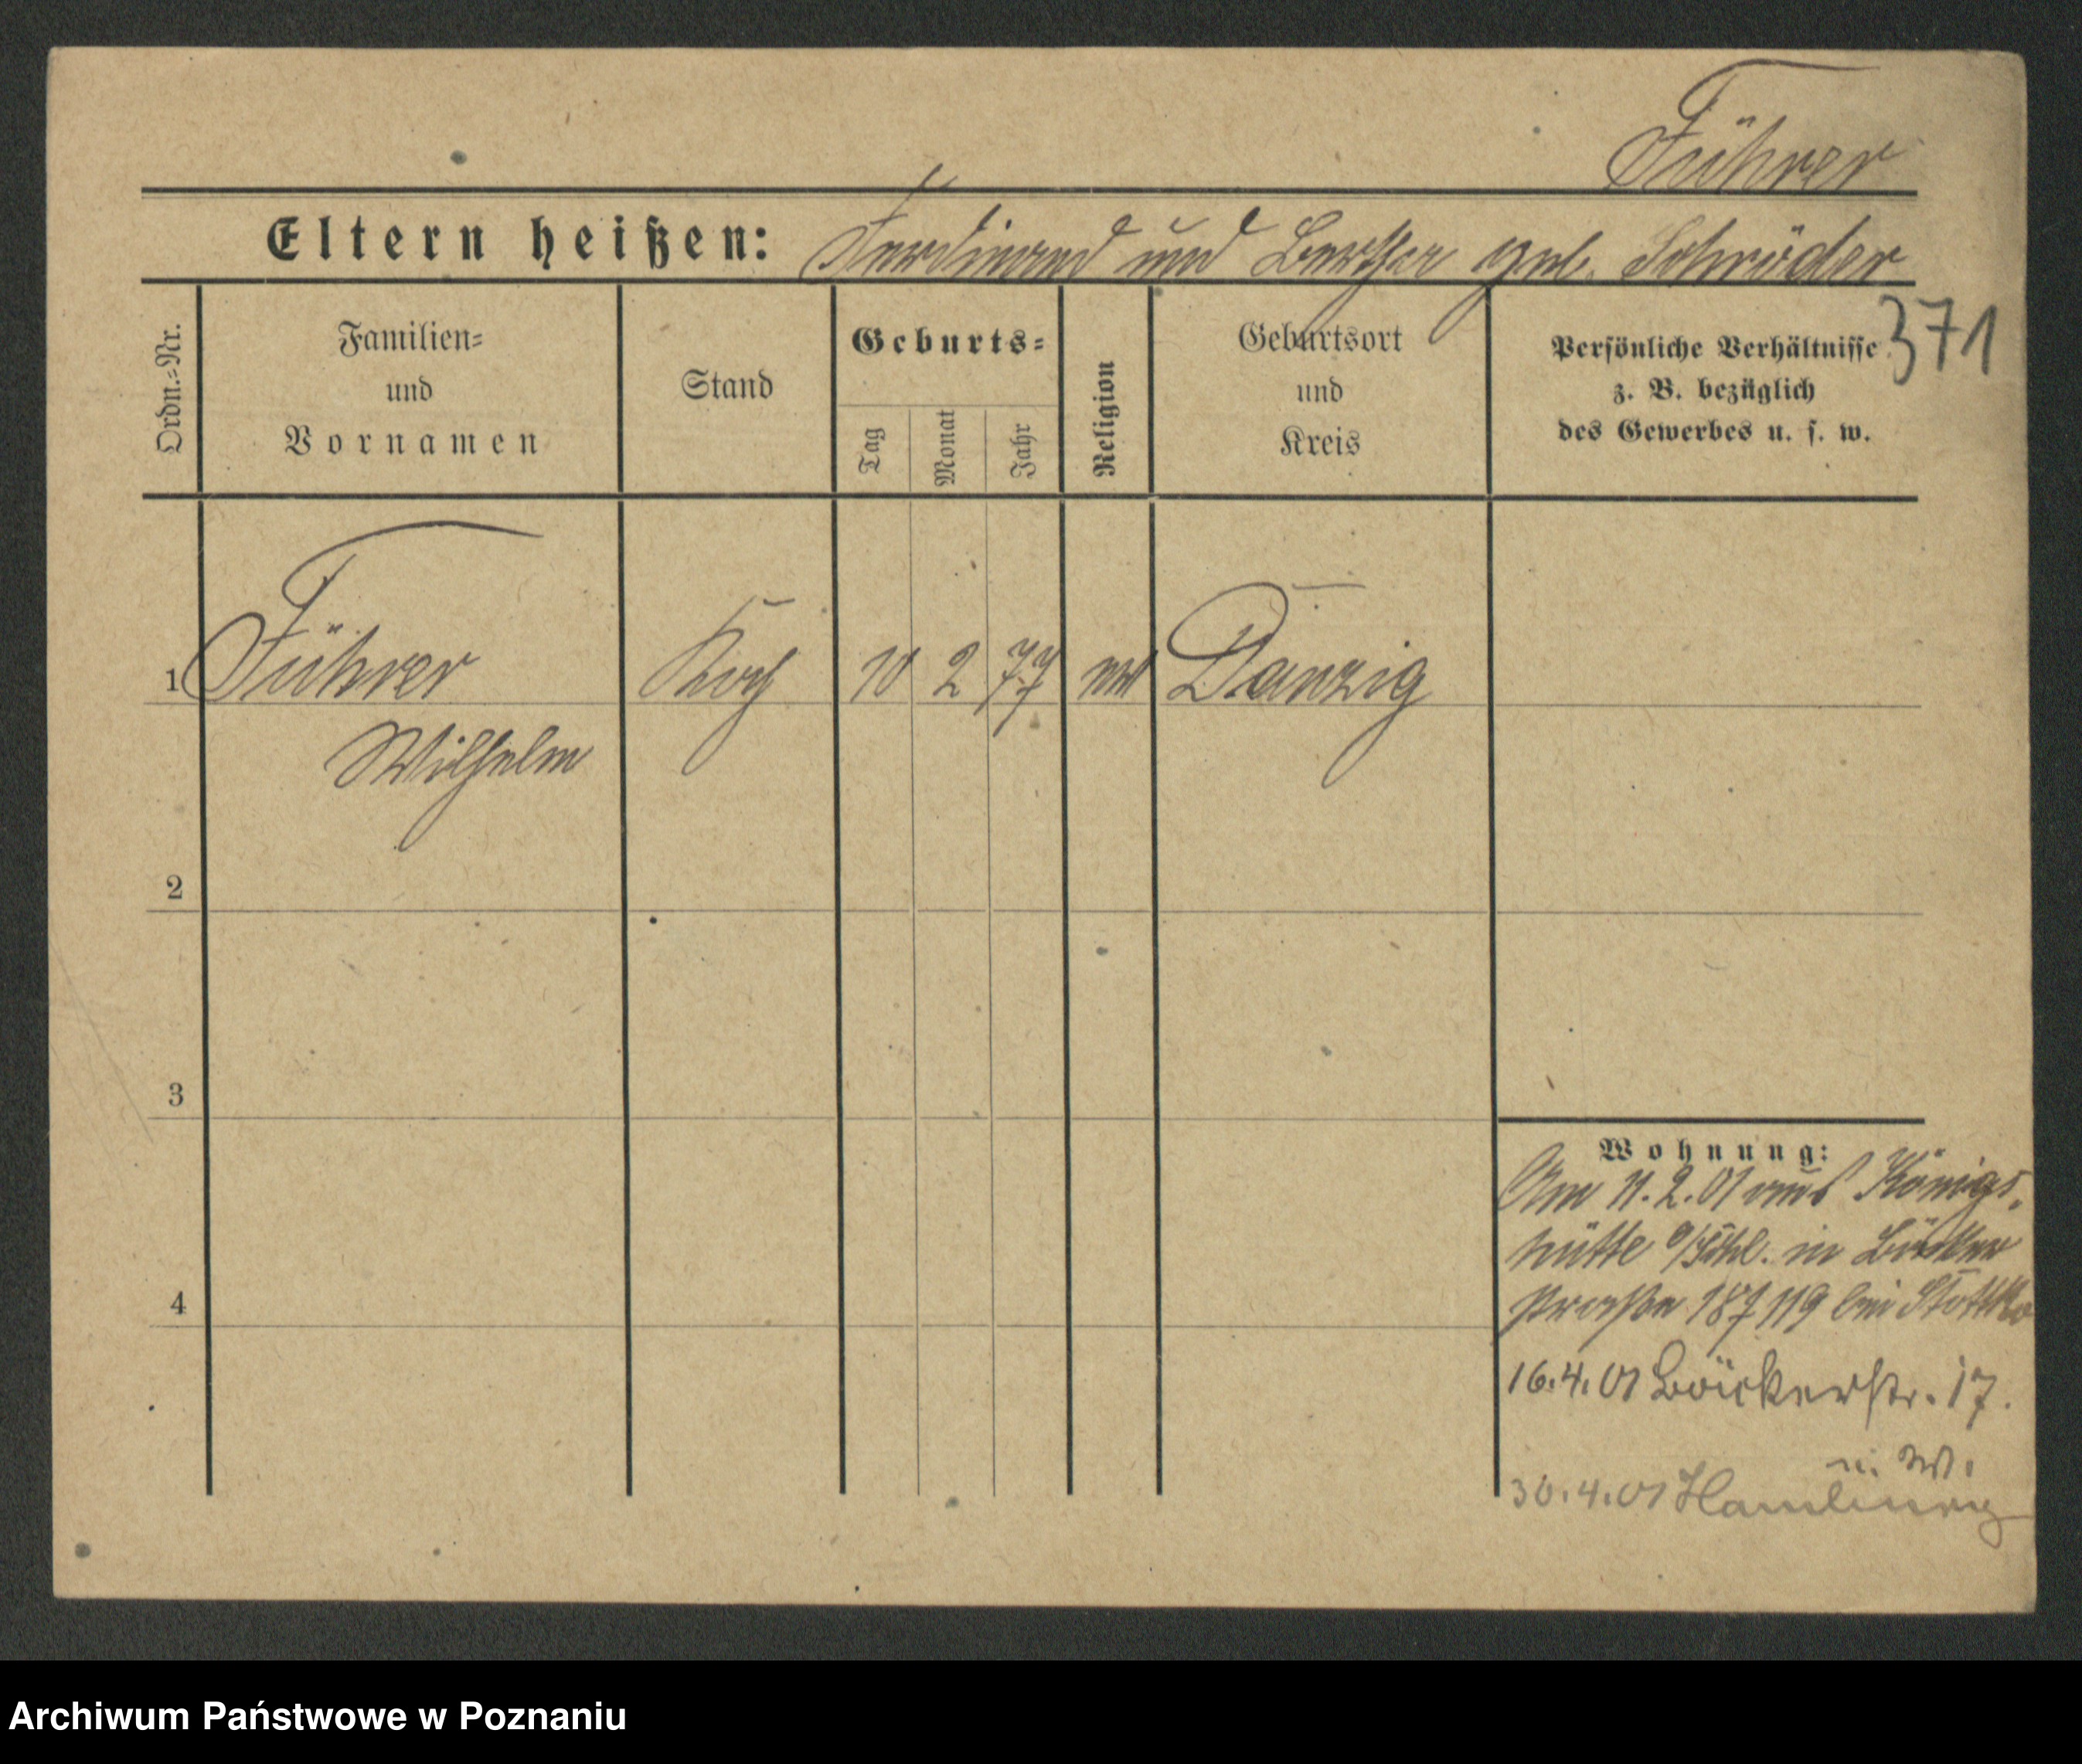 Führer
Eltern heißen: Ferdinand und Bertha geb. Schröder
371
Ordn.=Nr.
Familien=
und
Vornamen
Stand
Geburts=
Tag
Monat
Jahr
Religion
Geburtsort
und
Kreis
Persönliche Verhältnisse
z. B. bezüglich
des Gewerbes u. s. w.
1 Führer Koch 10 2 77 Danzig
Wilhelm
2
3
4
Wohnung:
Am 11.2.01 aus Königs-
hütte in Bäcker
straße bei
16.4.01 Bäckerstr. 17.
n. W.
30.4.01 Hamburg
Archiwum Państwowe w Poznaniu